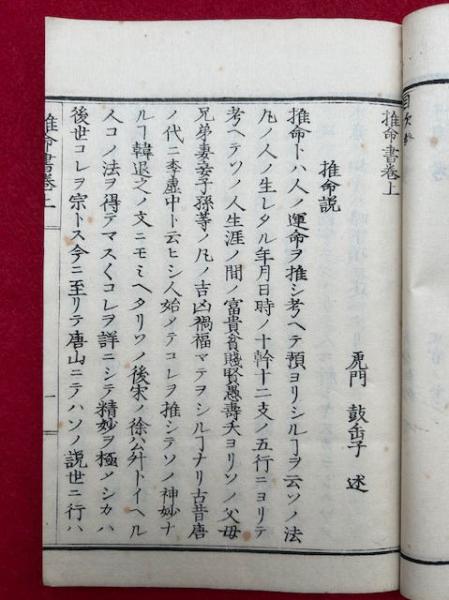 推命書巻上
虎門　鼓缶子　述
推命説
推命トハ人ノ運命ヲ推シ考ヘテ預ヨリシルヿヲ云ソノ法
凡ノ人ノ生レタル年月日時ノ十幹十二支ノ五行ニヨリテ
考ヘテソノ人生涯ノ間ノ富貴貧賤賢愚壽夭ヨリソノ父母
兄弟妻妾子孫等ノ凡ノ吉凶禍福マテヲシルヿナリ古昔唐
ノ代ニ李虚中ト云ヒシ人始メテコレヲ推シテソノ神妙ナ
ルヿ韓退之ノ文ニモミヘタリソノ後宋ノ徐公升トイヘル
人コノ法ヲ得テマスくコレヲ詳ニシテ精妙ヲ極メシカハ
後世コレヲ宗トス今ニ至リテ唐山ニテハソノ説世ニ行ハ
推命書巻上
一